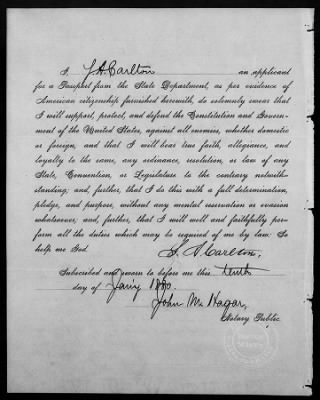 I, J. A. Carlton an applicant
for a Passport from the State Department, as per evidence of
American citizenship furnished herewith, do solemnly swear that
I will support, protect, and defend the Constitution and Govern-
ment of the United States, against all enemies, whether domestic
or foreign, and that I will bear true faith, allegiance, and
loyalty to the same, any ordinance, resolution, or law of any
State, Convention, or Legislature to the contrary notwith-
standing; and, further, that I do this with a full determination,
pledge, and purpose, without any mental reservation or evasion
whatsoever; and, further, that I will well and faithfully per-
form all the duties which may be required of me by law: So
help me God.
J. A. Carlton.
Subscribed and sworn to before me this tenth
day of Jany 1880.
John M. Hagar,
Notary Public.